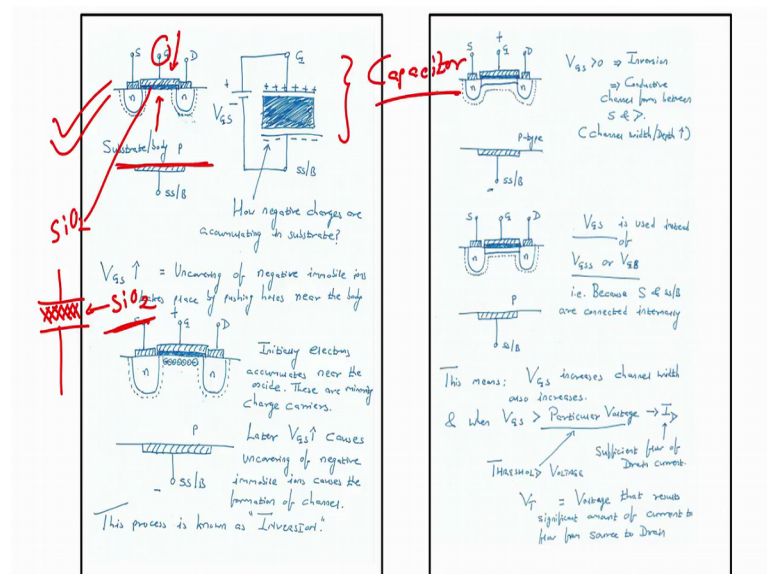 S G D
n n
Substrate/body P
SS/B
SiO2
G
+ + + + + + +
+
VGS
-
- - - -
SS/B
Capacitor
How negative charges are
accumulating in substrate?
VGS ↑ = Uncovering of negative immobile ions
takes place by pushing holes near the body
SiO2
S + G D
n n
Initially electrons
accumulates near the
oxide. These are minority
charge carriers.
P
SS/B
-
Later VGS↑ causes
uncovering of negative
immobile ions causes the
formation of channel.
This process is known as "INVERSION."
+
S G D
n n
VGS>0 ⇒ Inversion
⇒ Conductive
channel forms between
S & D.
(channel width/Depth ↑)
P-type
- SS/B
S G D
n n
P
SS/B
VGS is used instead
of
VGSS or VGB
i.e. Because S & SS/B
are connected internally
This means; VGS increases channel width
also increases.
& when VGS > Particular Voltage → ID
THRESHOLD VOLTAGE
Sufficient flow of
Drain current.
VT = Voltage that results
significant amount of current to
flow from source to Drain